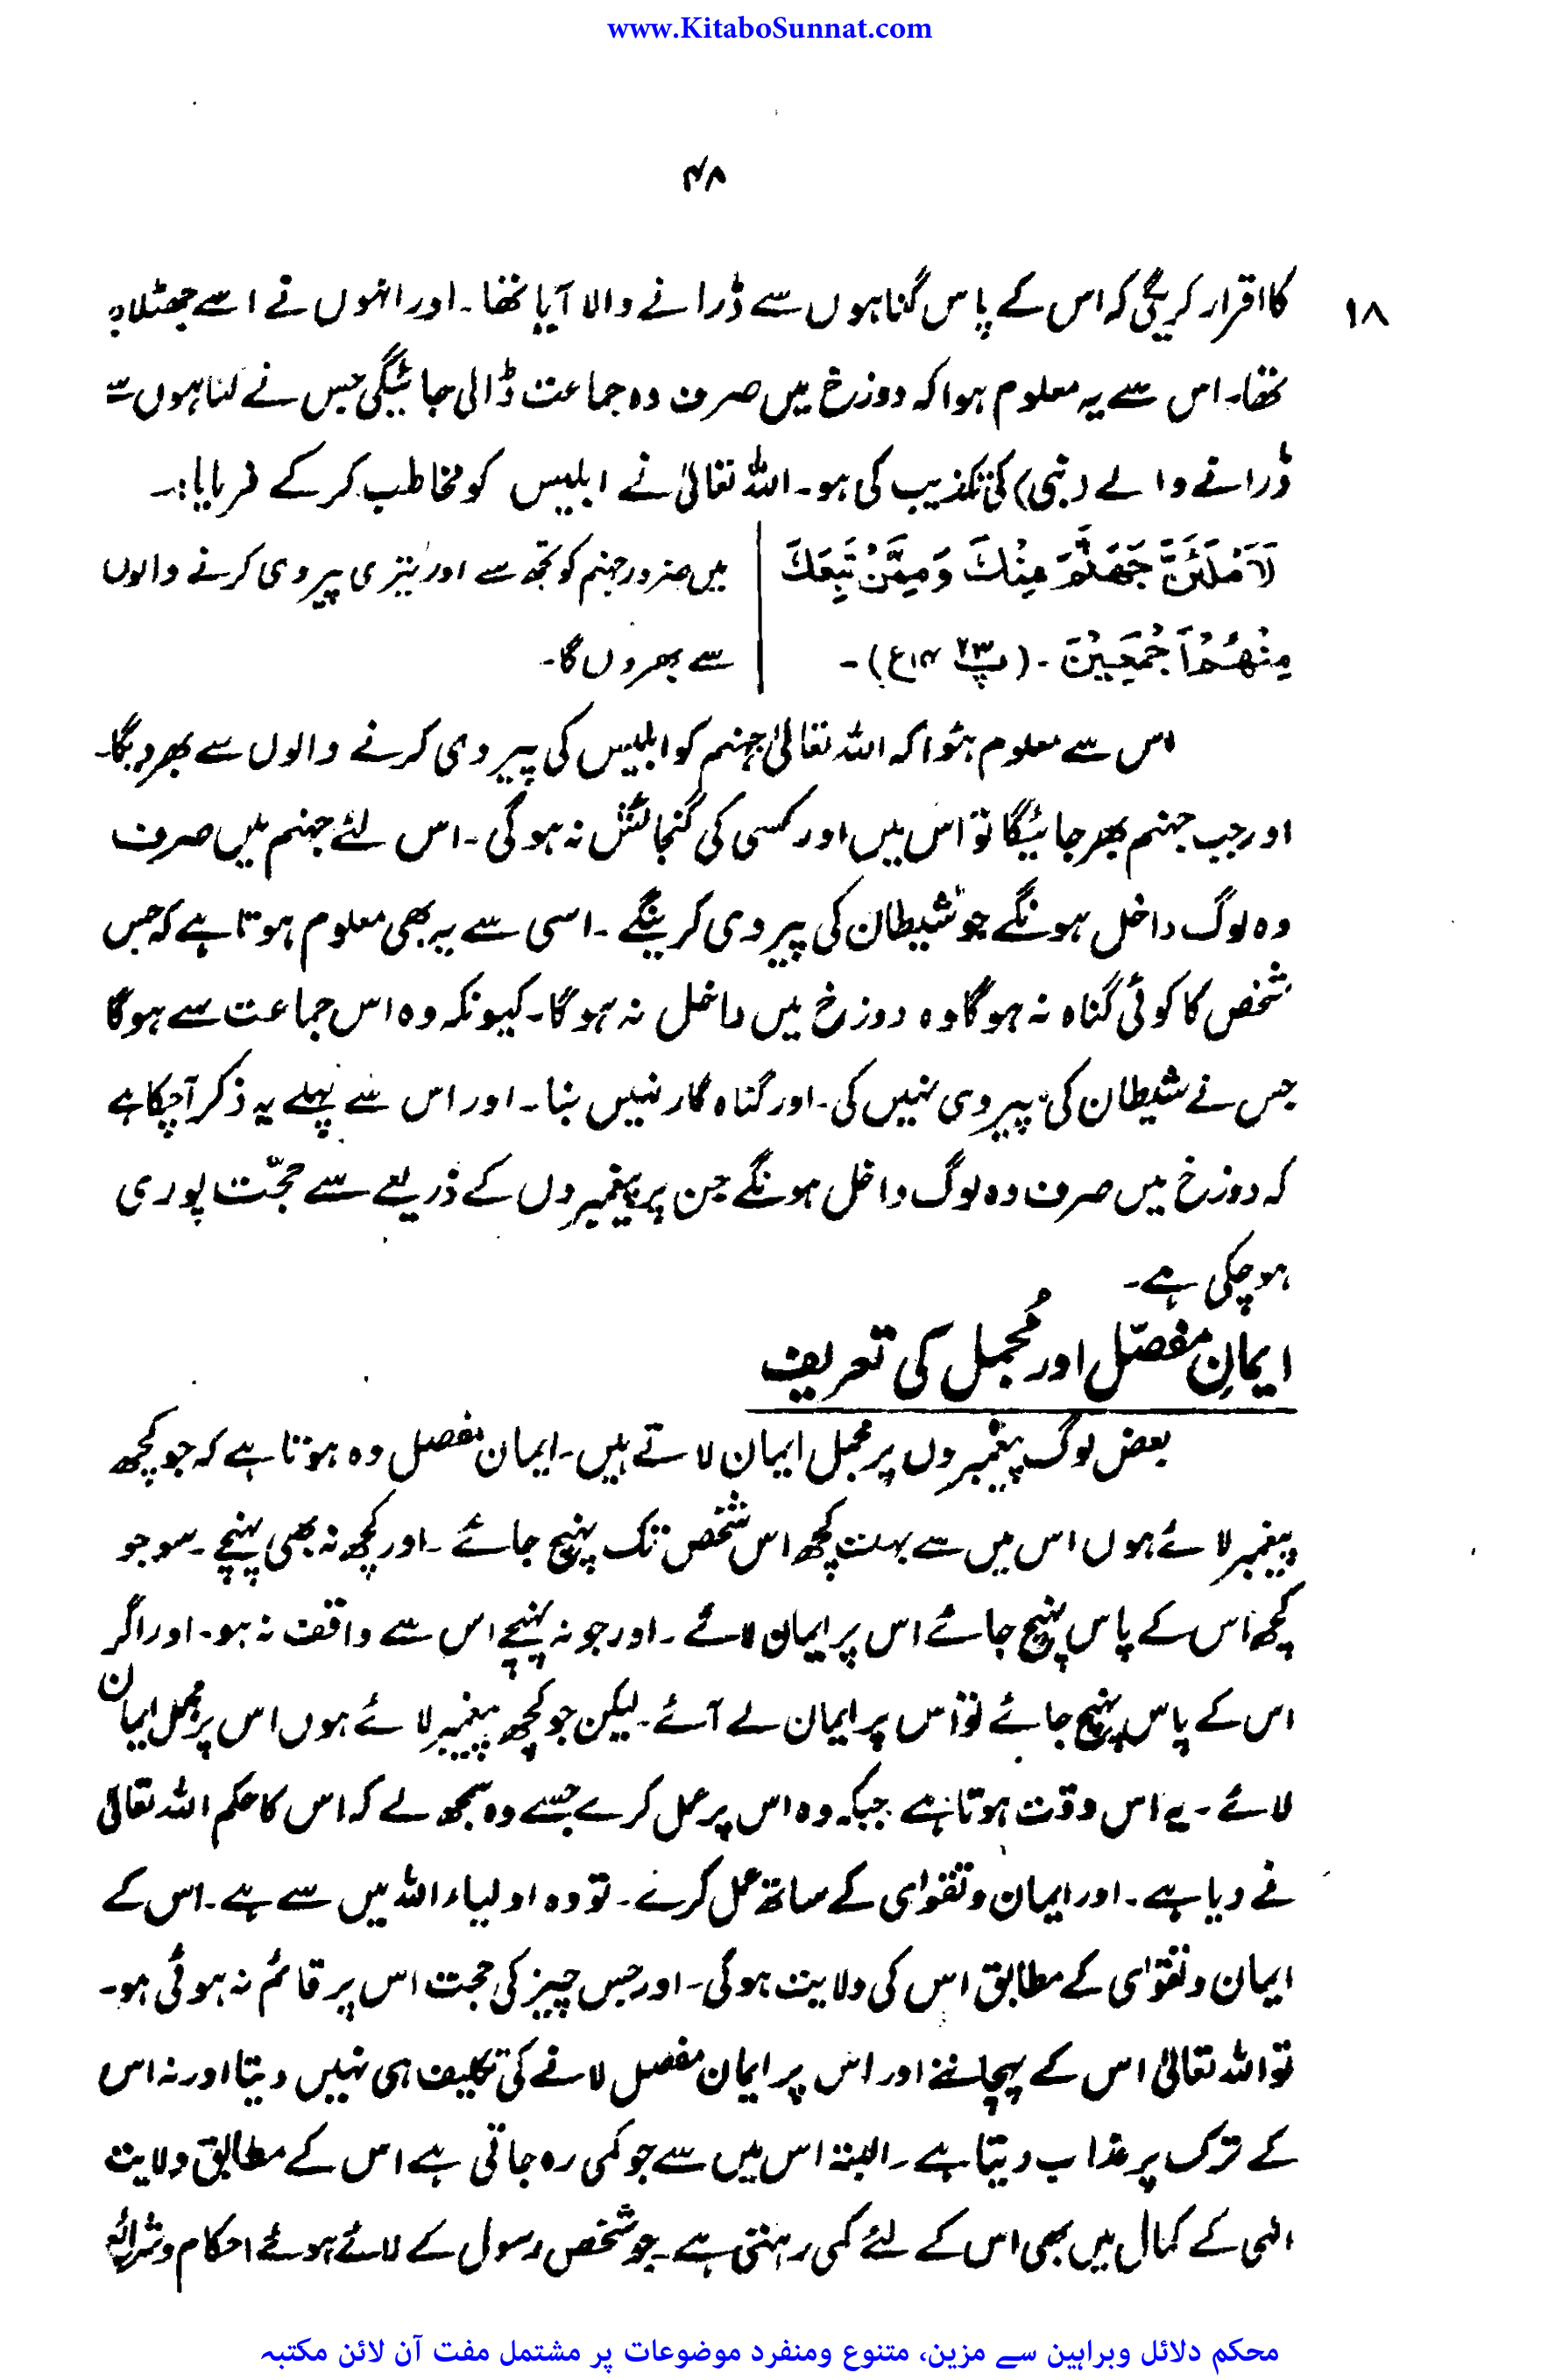 www.KitaboSunnat.com
۴۸
۱۸
کا اقرار کریگی کہ اس کے پاس گناہوں سے ڈرانے والا آیا تھا۔ اور انہوں نے اسے جھٹلایا
تھا۔ اس سے یہ معلوم ہوا کہ دوزخ میں صرف وہ جماعت ڈالی جائیگی جس نے گناہوں سے
ڈرانے والے (نبی) کی تکذیب کی ہو۔ اللہ تعالیٰ نے ابلیس کو مخاطب کر کے فرمایا:۔
لَاَمْلَئَنَّ جَهَنَّمَ مِنْكَ وَمِمَّنْ تَبِعَكَ
مِنْهُمْ اَجْمَعِيْنَ ۔ (پ ۲۳ ع۱۴)۔
میں ضرور جہنم کو تجھ سے اور تیری پیروی کرنے والوں
سے بھروں گا۔
اس سے معلوم ہؤا کہ اللہ تعالیٰ جہنم کو ابلیس کی پیروی کرنے والوں سے بھر دیگا۔
اور جب جہنم بھر جائیگا تو اس میں اور کسی کی گنجائش نہ ہوگی۔ اس لئے جہنم میں صرف
وہ لوگ داخل ہونگے جو شیطان کی پیروی کرینگے ۔ اسی سے یہ بھی معلوم ہوتا ہے کہ جس
شخص کا کوئی گناہ نہ ہوگا وہ دوزخ میں داخل نہ ہوگا۔ کیونکہ وہ اس جماعت سے ہوگا
جس نے شیطان کی پیروی نہیں کی۔ اور گناہ گار نہیں بنا۔ اور اس سے پہلے یہ ذکر آچکا ہے
کہ دوزخ میں صرف وہ لوگ داخل ہونگے جن پر پیغمبروں کے ذریعے سے حجّت پوری
ہو چکی ہے۔
ایمانِ مفصّل اور مُجمل کی تعریف
بعض لوگ پیغمبروں پر مجمل ایمان لاتے ہیں۔ ایمان مفصل وہ ہوتا ہے کہ جو کچھ
پیغمبر لائے ہوں اس میں سے بہت کچھ اس شخص تک پہنچ جائے ۔ اور کچھ نہ بھی پہنچے ۔ سو جو
کچھ اس کے پاس پہنچ جائے اس پر ایمان لائے ۔ اور جو نہ پہنچے اس سے واقف نہ ہو۔ اور اگر
اس کے پاس پہنچ جائے تو اس پر ایمان لے آئے۔ لیکن جو کچھ پیغمبر لائے ہوں اس پر مجمل ایمان
لائے ۔ یہ اس وقت ہوتا ہے جبکہ وہ اس پر عمل کرے جسے وہ سمجھ لے کہ اس کا حکم اللہ تعالیٰ
نے دیا ہے ۔ اور ایمان و تقوٰی کے ساتھ عمل کرے۔ تو وہ اولیاء اللہ میں سے ہے ۔ اس کے
ایمان و تقوٰی کے مطابق اس کی ولایت ہوگی۔ اور جس چیز کی حجت اس پر قائم نہ ہوئی ہو۔
تو اللہ تعالیٰ اس کے پہچاننے اور اس پر ایمان مفصل لانے کی تکلیف ہی نہیں دیتا اور نہ اس
کے ترک پر عذاب دیتا ہے ۔ البتہ اس میں سے جو کمی رہ جاتی ہے اس کے مطابق ولایت
الٰہی کے کمال میں بھی اس کے لئے کمی رہتی ہے ۔ جو شخص رسول کے لائے ہوئے احکام و شرائع
محکم دلائل وبراہین سے مزین، متنوع ومنفرد موضوعات پر مشتمل مفت آن لائن مکتبہ